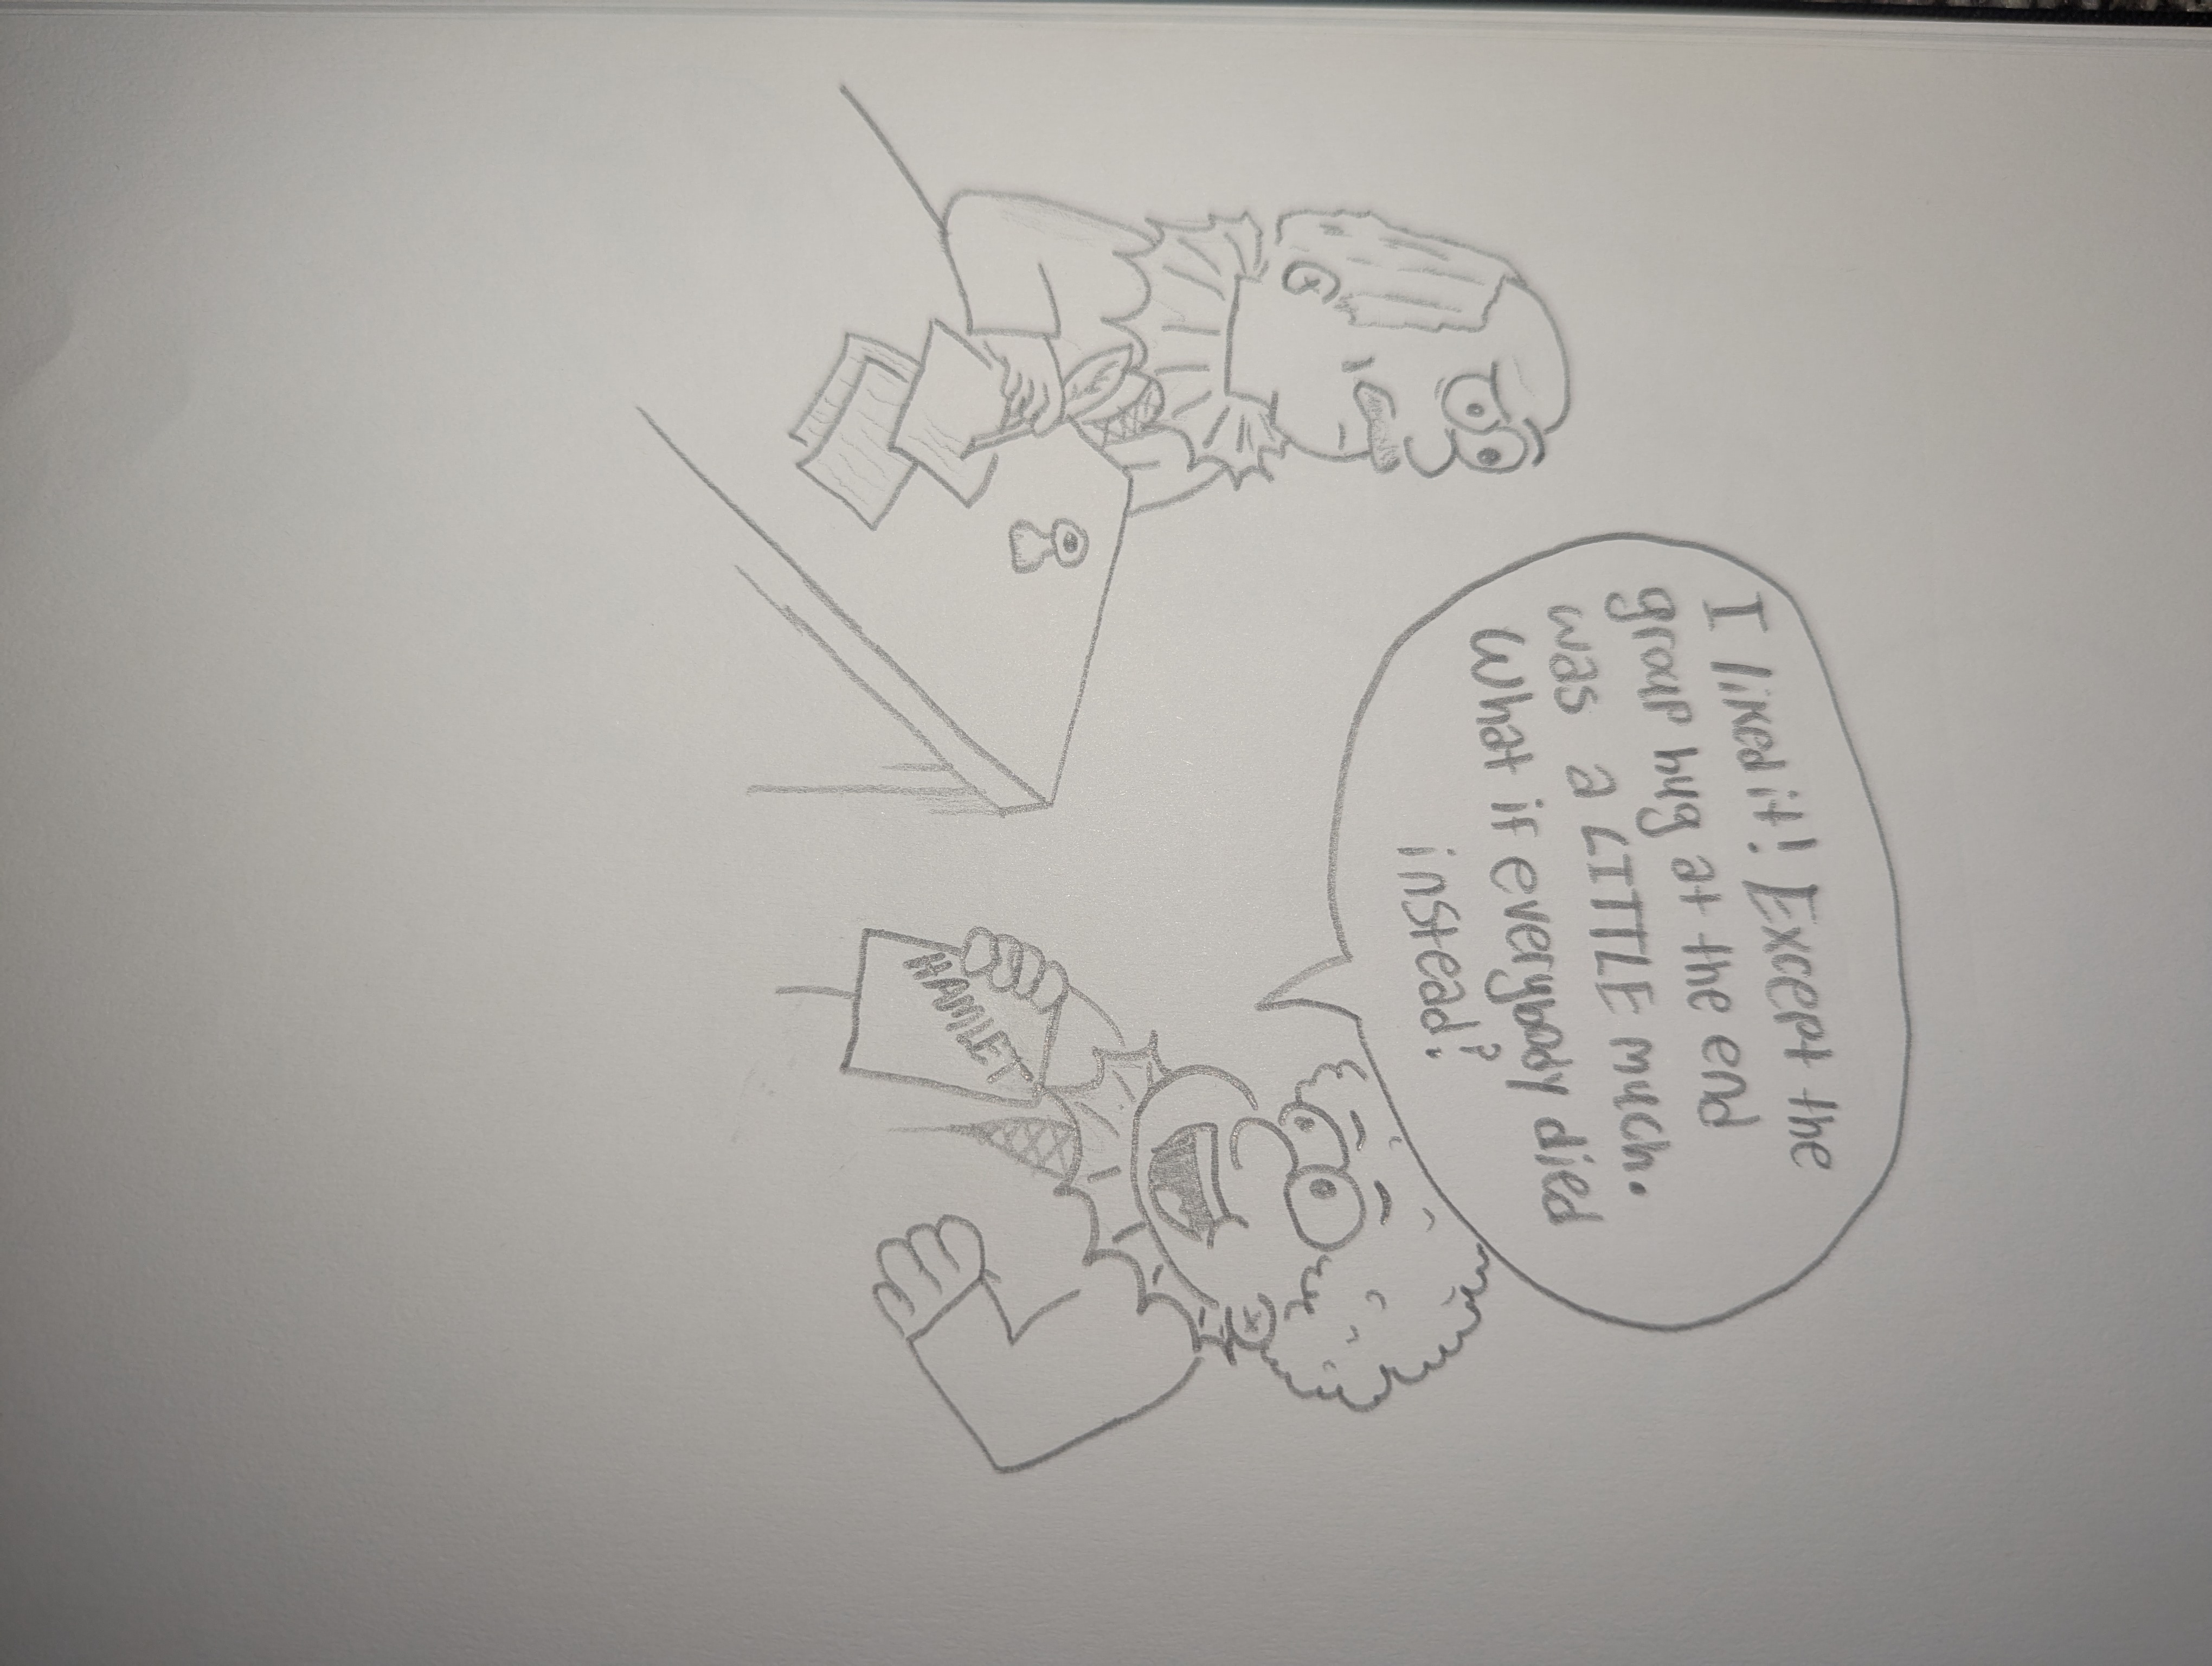 I liked it! Except the
group hug at the end
was a LITTLE much.
What if everybody died
instead?
HAMLET